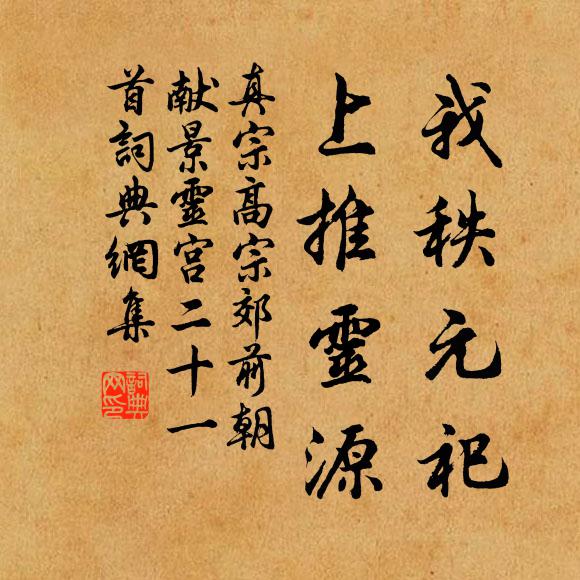 我秩元祀
上推靈源
真宗高宗郊前朝
献景靈宫二十一
首詞典網集
詞典
网印